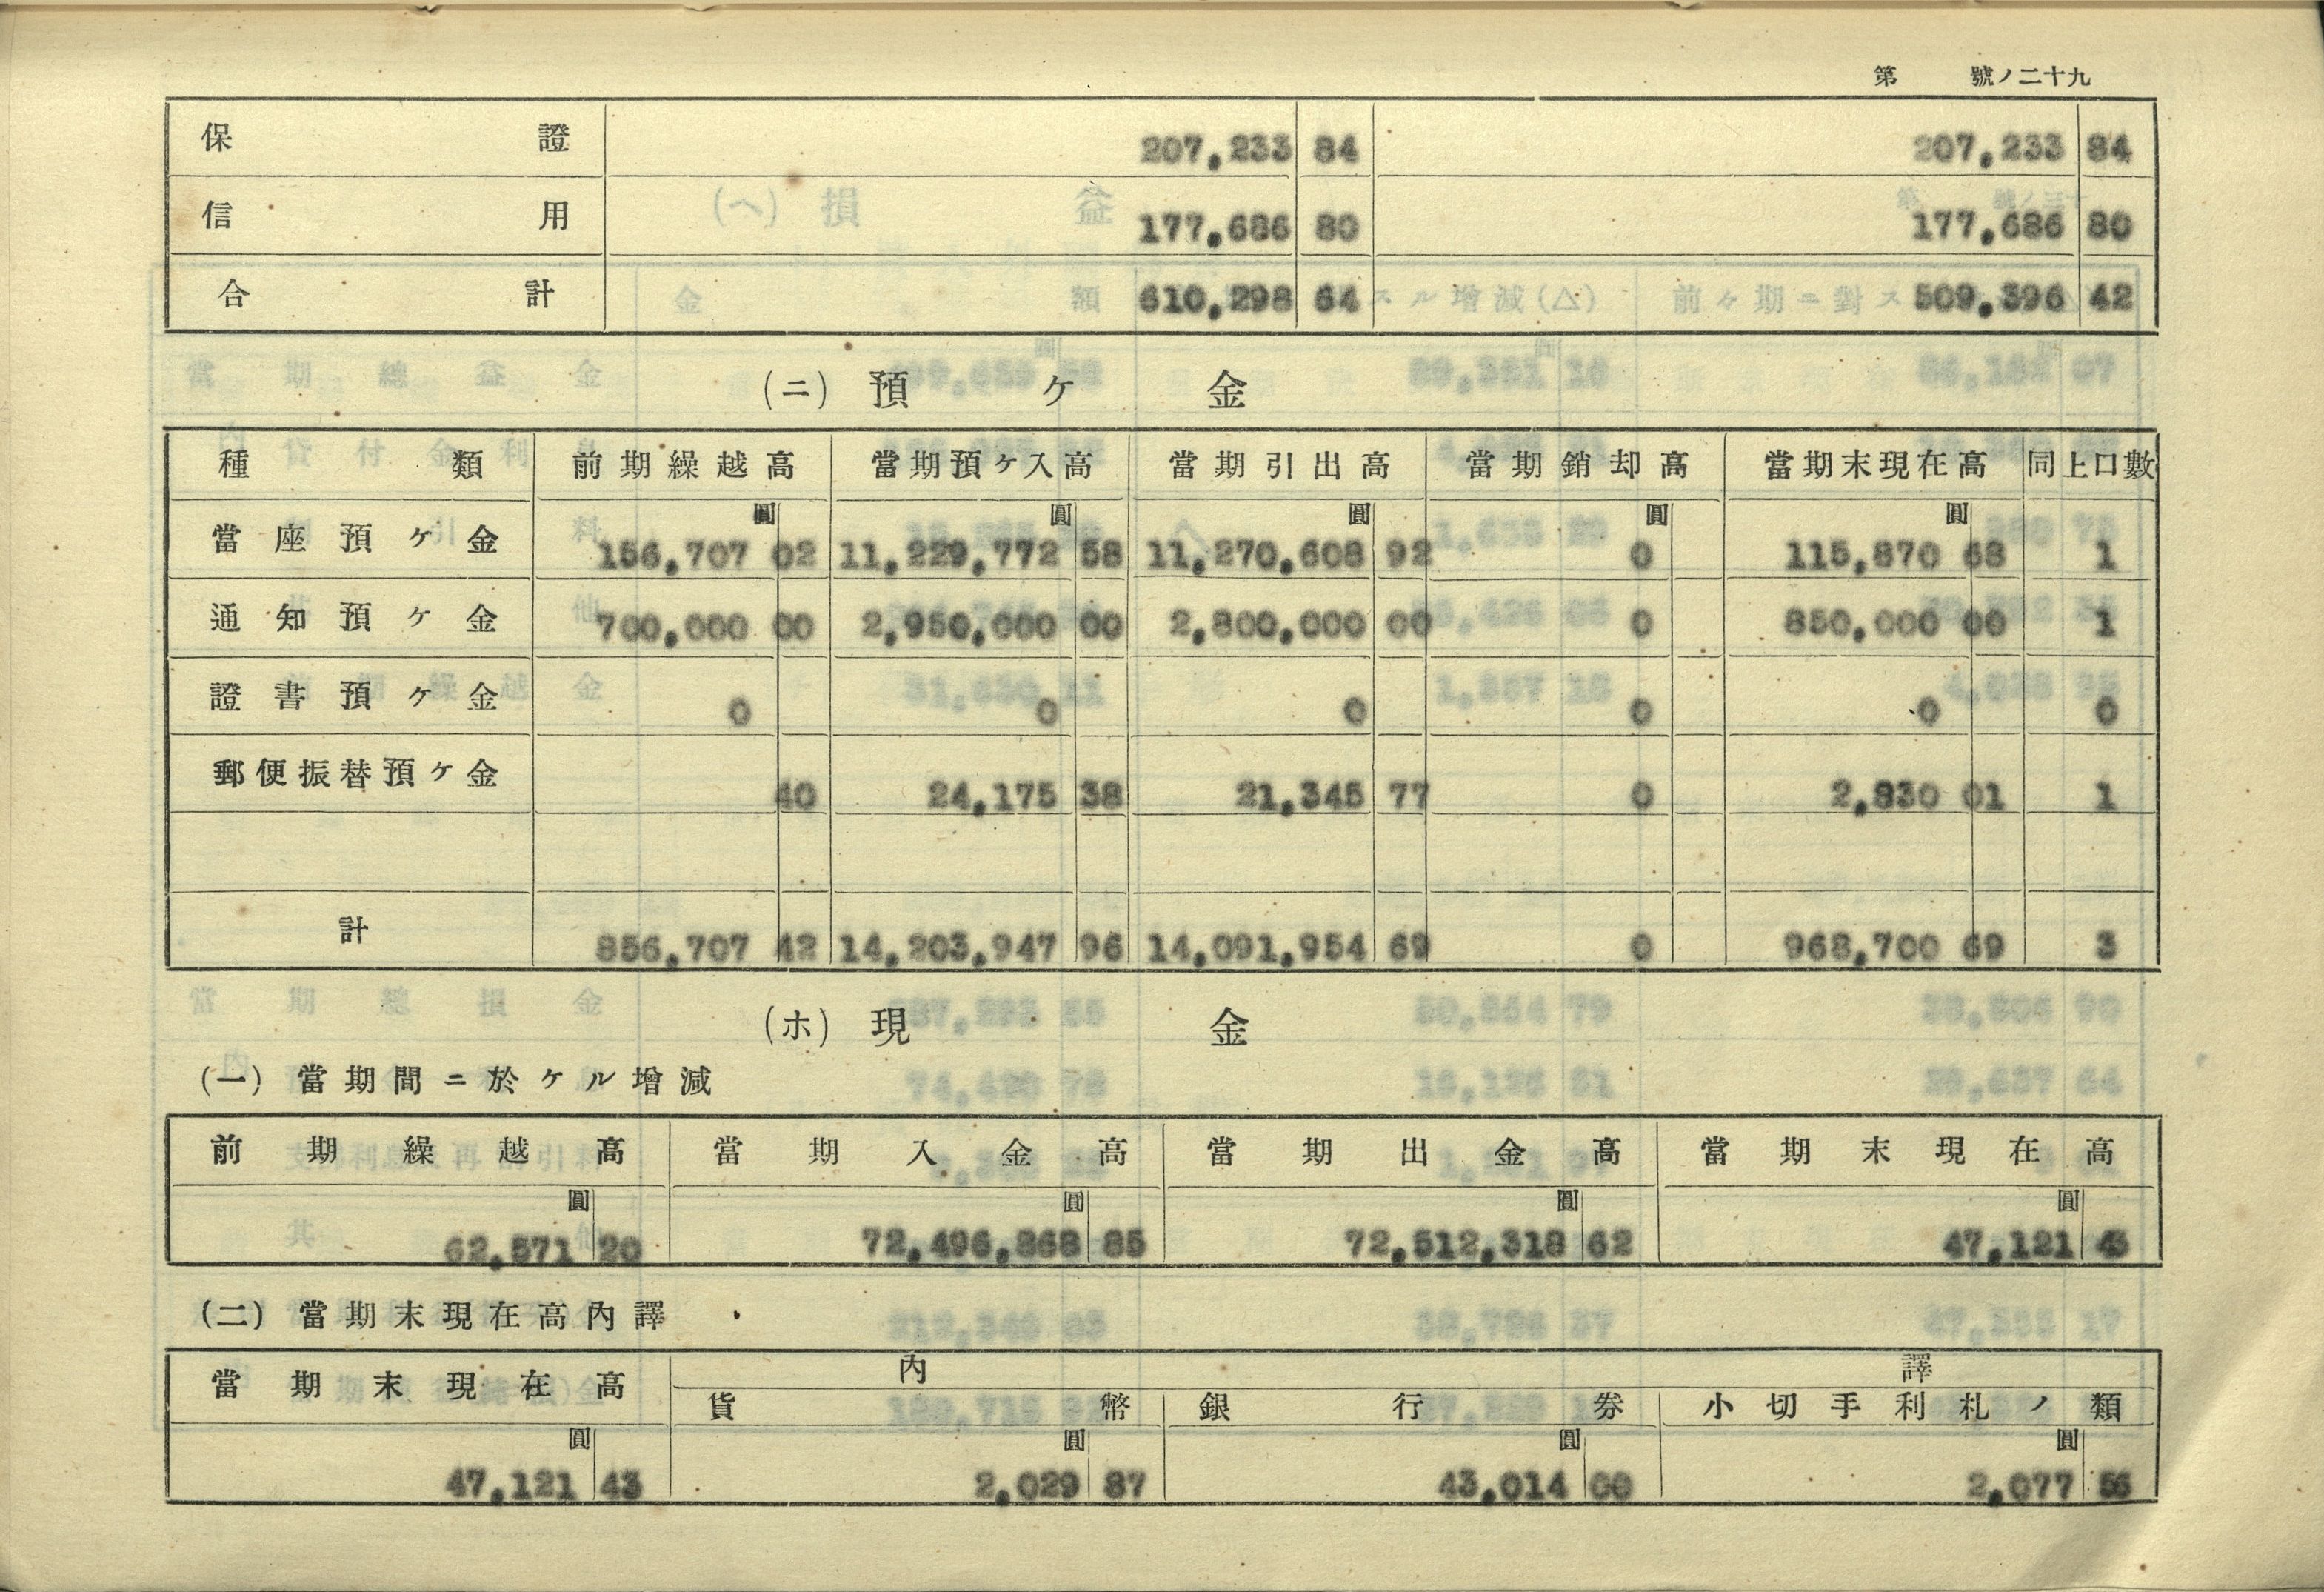 第　　號ノ二十九
保證 207,233 84 207,233 84
信用 177,686 80 177,686 80
合計 610,298 64 509,396 42
(ニ) 預ヶ金
種類 前期繰越高 當期預ヶ入高 當期引出高 當期銷却高 當期末現在高 同上口數
圓 圓 圓 圓 圓
當座預ヶ金 156,707 02 11,229,772 58 11,270,608 92 0 115,870 68 1
通知預ヶ金 700,000 00 2,950,000 00 2,800,000 00 0 850,000 00 1
證書預ヶ金 0 0 0 0 0 0
郵便振替預ヶ金 40 24,175 38 21,345 77 0 2,830 01 1
計 856,707 42 14,203,947 96 14,091,954 69 0 968,700 69 3
(ホ) 現金
(一) 當期間ニ於ケル增減
前期繰越高 當期入金高 當期出金高 當期末現在高
圓 圓 圓 圓
62,571 20 72,496,868 85 72,512,318 62 47,121 43
(二) 當期末現在高內譯
當期末現在高 內譯
貨幣 銀行券 小切手利札ノ類
圓 圓 圓 圓
47,121 43 2,029 87 43,014 00 2,077 56